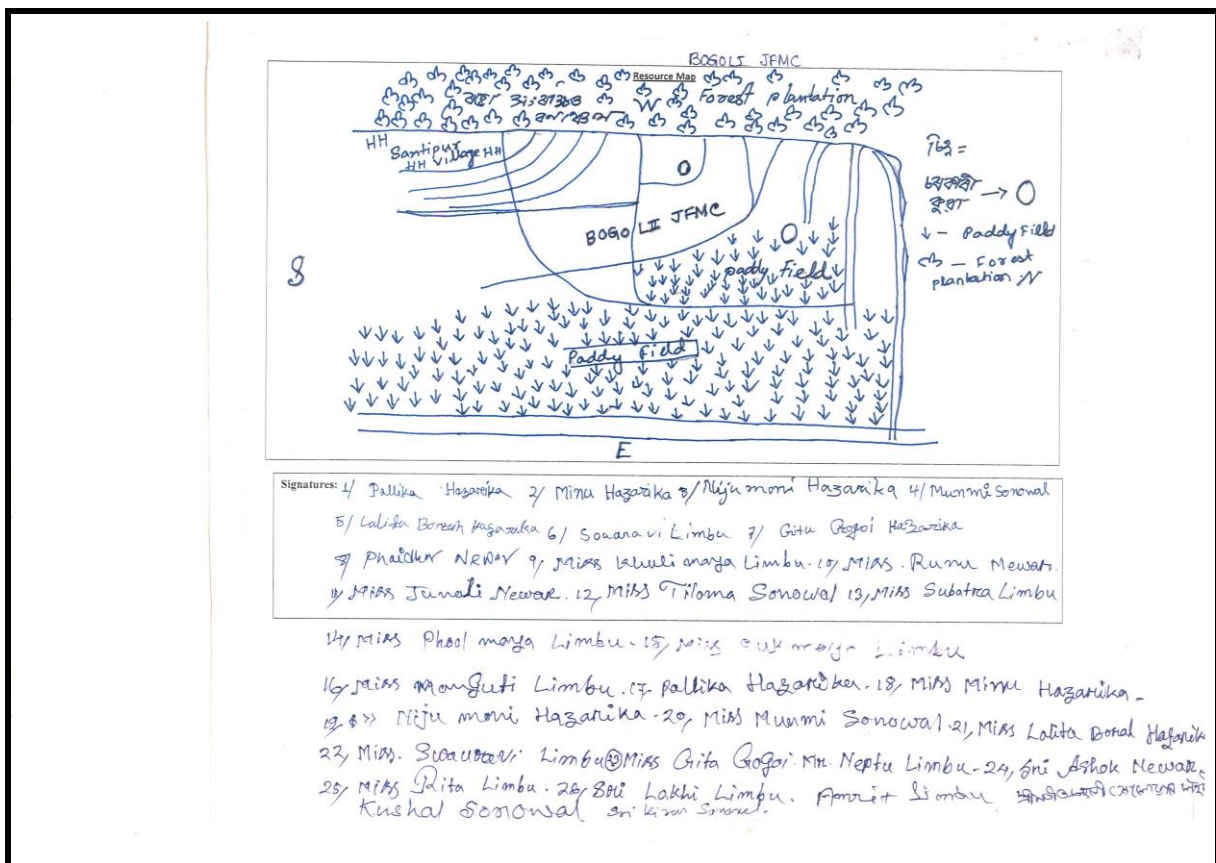 BOGOLI JFMC
Resource Map
W Forest plantation
HH
Santipur HH
HH Village
O
BOGOLII JFMC
S
Paddy Field
Paddy Field
E
চিহ্ন =
চৰকাৰী
কুৱা → O
↓ - Paddy Field
— Forest
plantation N
Signatures: 1/ Pallika Hazarika 2/ Minu Hazarika 3/ Niju moni Hazarika 4/ Munmi Sonowal
5/ Lalita Borah Hazarika 6/ Souaravi Limbu 7/ Gitu Gogoi Hazarika
8/ Phaidhor Newar 9, Miss Khuli maya Limbu. 10, Miss. Runu Mewar.
11, Miss Junali Newar. 12, Miss Tiloma Sonowal 13, Miss Subatra Limbu
14, Miss Phool maya Limbu. 15, Miss Suk maya Limbu
16, Miss Monguti Limbu. 17. Pallika Hazarika. 18, Miss Minu Hazarika -
19. Niju moni Hazarika. 20, Miss Munmi Sonowal 21, Miss Lalita Borah Hazarik
22, Miss. Swauravi Limbu 23 Miss Gita Gogoi Mr. Neptu Limbu. 24, Sri Ashok Newar,
25, Miss Rita Limbu. 26, Sri Lakhi Limbu. Amrit Limbu
Kushal Sonowal Sri Kiran Sonowal.